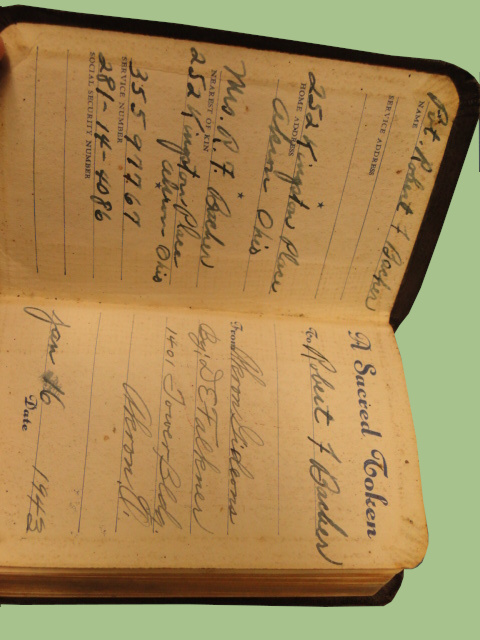 Pvt. Robert F Bacher
NAME
SERVICE ADDRESS
252 Kingston Place
HOME ADDRESS
Akron Ohio
Mrs. R. F. Bacher
NEAREST OF KIN
252 Kingston Place
Akron Ohio
35597769
SERVICE NUMBER
281-14-4086
SOCIAL SECURITY NUMBER
A Sacred Token
To Robert F Bacher
From Akron Gideons
By: D E Falkner
1401 Tower Bldg.
Akron, O.
Jan 16 1943
Date